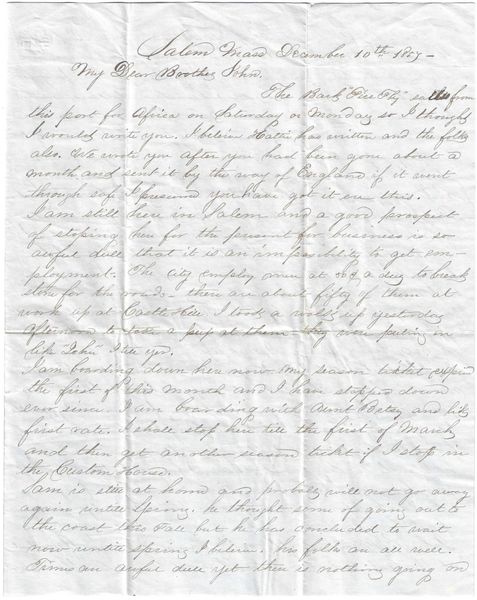 Salem Mass December 10th 1857 -
My Dear Brother John.
The Bark "Fire Fly" sails from
this port for Africa on Saturday or Monday so I thought
I would write you. I believe Hattie has written and the folks
also. We wrote you after you had been gone about a
month and sent it by the way of England if it went
through safe I presume you have got it ere this.
I am still here in Salem and a good prospect
of stoping here for the present for business is so
awful dull that it is an impossibility to get em-
ployment. The city employ men at a day to break
stone for the roads - there are about fifty of them at
work up at Castle Hill I took a walk up yesterday
afternoon to take a peep at them they were puting in
like "John" I tell you.
I am boarding down here now my season ticket expired
the first of this month and I have stopped down
ever since. I am boarding with Aunt Betsy and like
first rate. I shall stop here till the first of March
and then get another season ticket if I stop in
the Custom House.
Sam is still at home and probaly will not go away
again untill Spring. he thought some of going out to
the coast this Fall but he has concluded to wait
now untill Spring I believe. his folks are all well.
Times are awful dull yet there is nothing going on